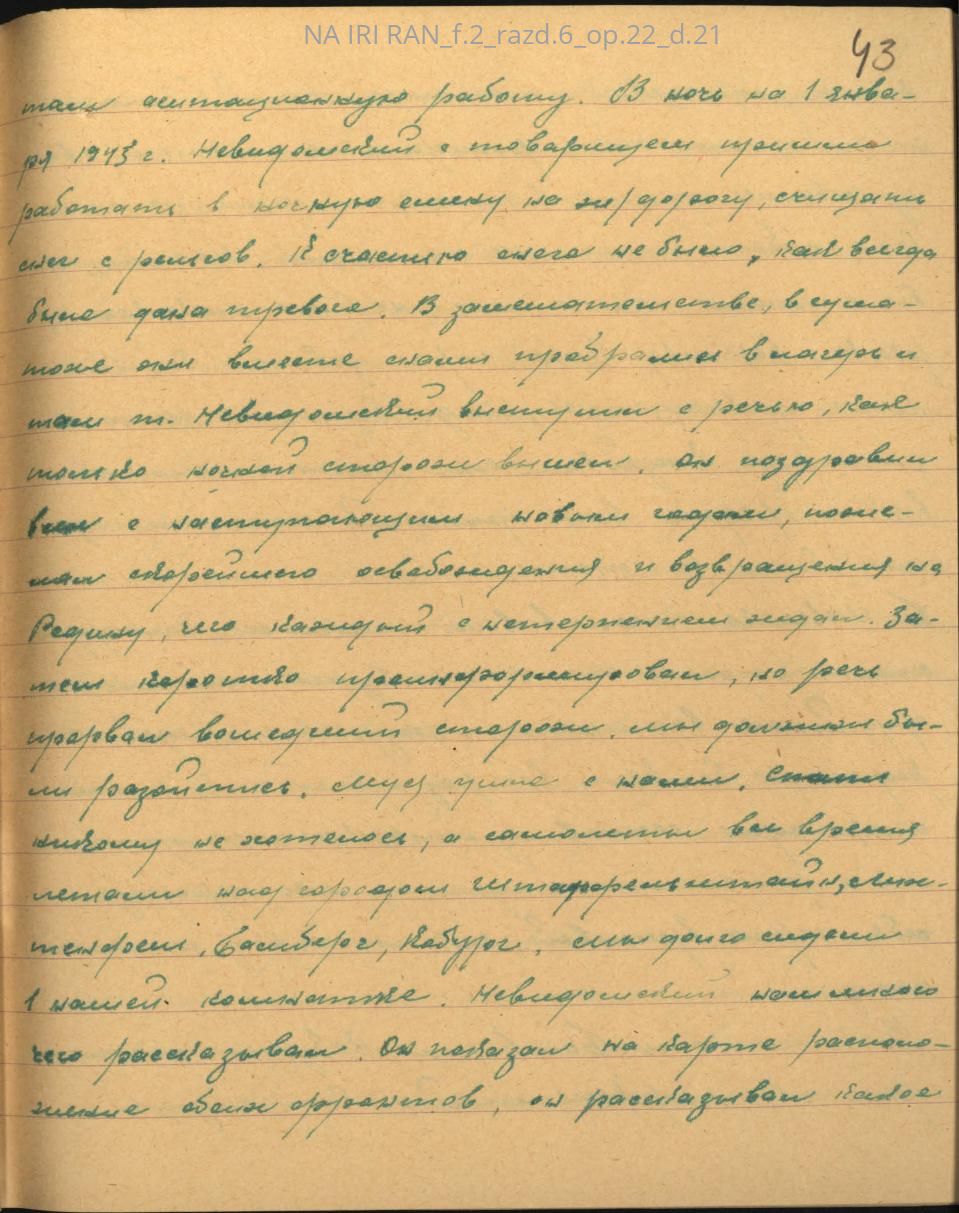 NA IRI RAN_f.2_razd.6_op.22_d.21
43
тали агитационную работу. В ночь на 1 янва-
ря 1943 г. Невидомский с товарищем пришли
работать в ночную смену на ж/дорогу, счищать
снег с рельсов. К счастью снега не было, как всегда
была дана тревога. В замешательстве, в сума-
тохе они вместе с нами пробрались в лагерь и
там т. Невидомский выступил с речью, как
только ночной сторож вышел. Он поздравил
всех с наступающим новым годом, поже-
лал скорейшего освобождения и возвращения на
Родину, чего каждый с нетерпением ждал. За-
тем коротко проинформировал, но речь
прервал вошедший сторож. Мы должны бы-
ли разойтись. с нами. Спать
никому не хотелось, а самолеты все время
летали над городом Штаффельштайн, Лих-
тенфельс, Бамберг, Кобург. Мы долго сидели
в нашей комнатке. Невидомский нам много
чего рассказывал. Он показал на карте располо-
жение обеих фронтов, он рассказывал какое